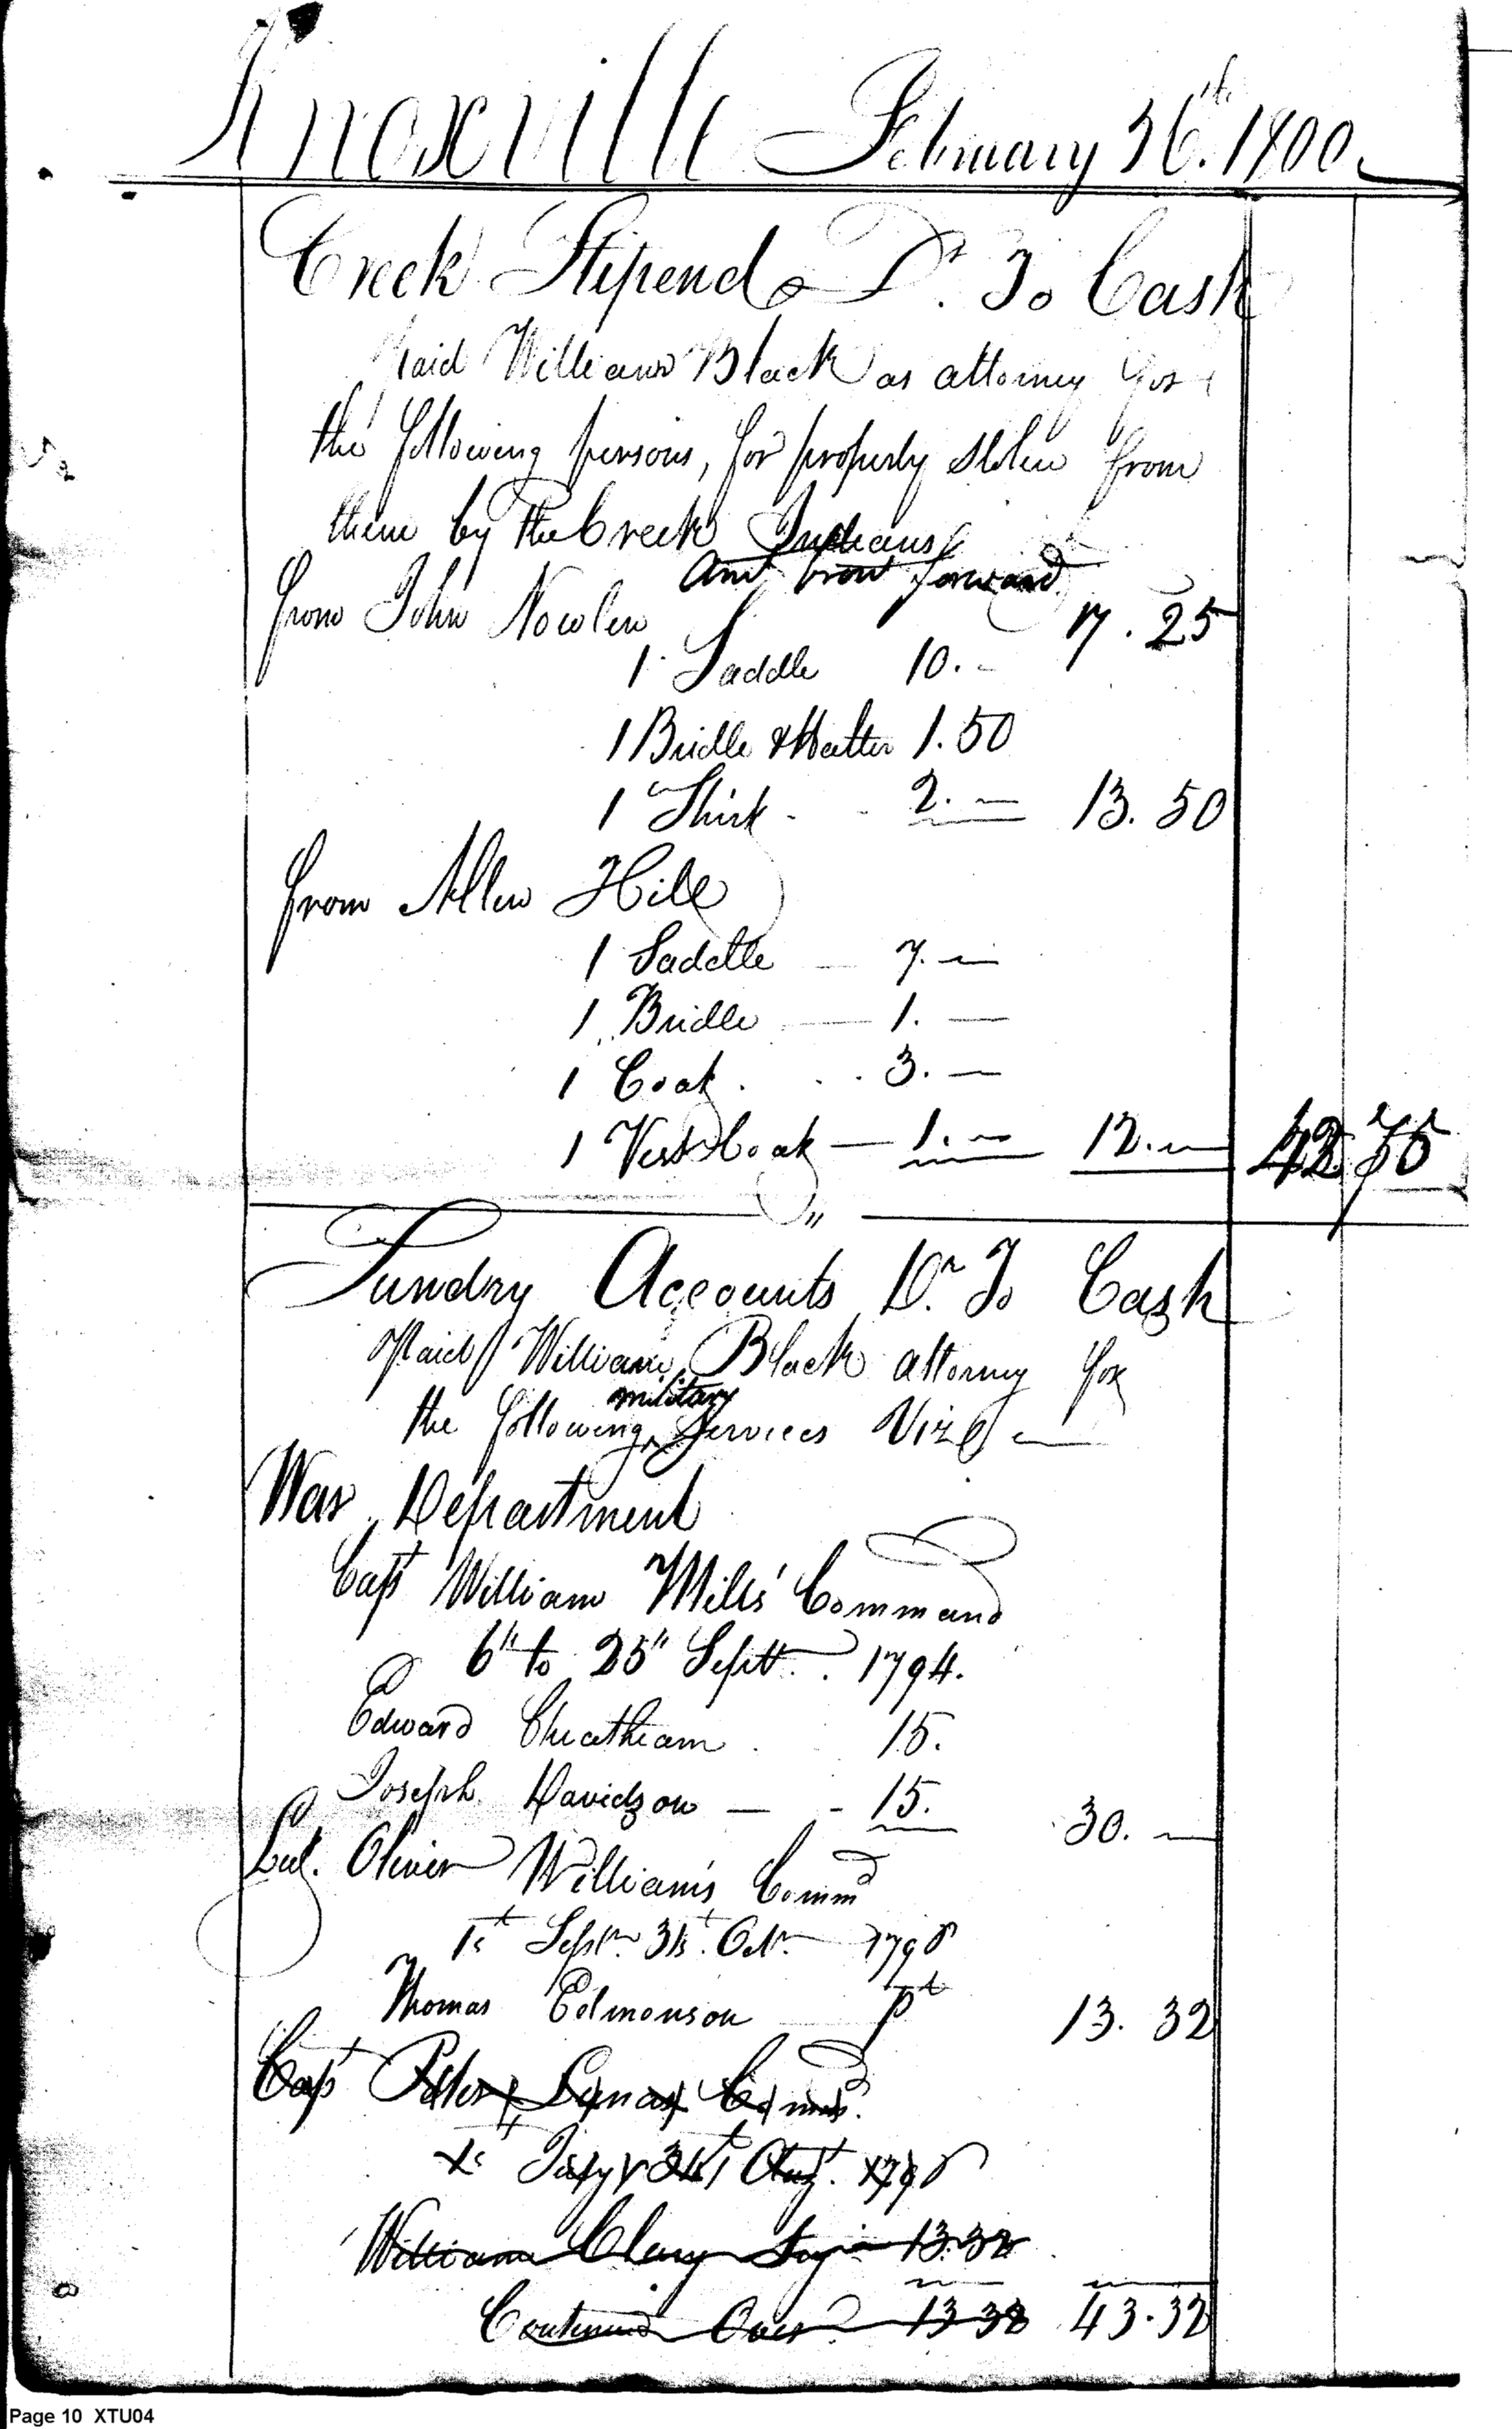 Knoxville February 26th. 1800
Creek Stipend Dr. To Cash
Paid William Black as attorney for
the following persons, for property stolen from
them by the Creek Indians
Amt brot forward 17.25
from John Nowlen
1 Saddle 10.-
1 Bridle & Halter 1.50
1 Shirt - 2.— 13.50
from Allen Hill
1 Saddle — 7.—
1 Bridle — 1.—
1 Coat . . . 3.—
1 Vest Coat — 1.— 12.— 42 75
Sundry Accounts Dr. To Cash
Paid William Black attorney for
military
the following ^ Services Viz —
War Department
Capt William Mills' Command
6" to 25" Sept. 1794.
Edward Cheatham . 15.
Joseph Davidson — - 15. 30.—
Lut. Oliver William's Commd
1st Sepr. 31st. Otr. 1798
Thomas Edmonson pt 13.32
Capt Commd.
1st July 31st Augt. 1798
William Clary 13.32
Continued Over 13 32 43.32
Page 10 XTU04